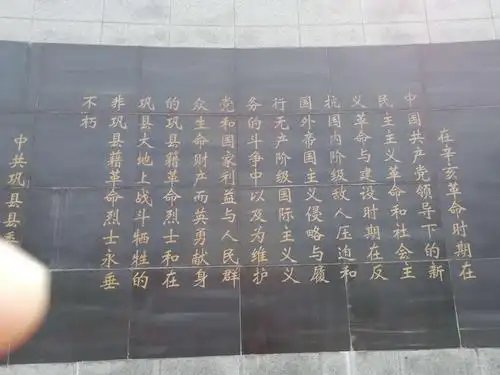 在辛亥革命时期在
中国共产党领导下的新
民主主义革命和社会主
义革命与建设时期在反
抗国内阶级敌人压迫和
国外帝国主义侵略与履
行无产阶级国际主义义
务的斗争中以及为维护
党和国家利益与人民群
众生命财产而英勇献身
的巩县籍革命烈士和在
巩县大地上战斗牺牲的
非巩县籍革命烈士永垂
不朽
中共巩县县